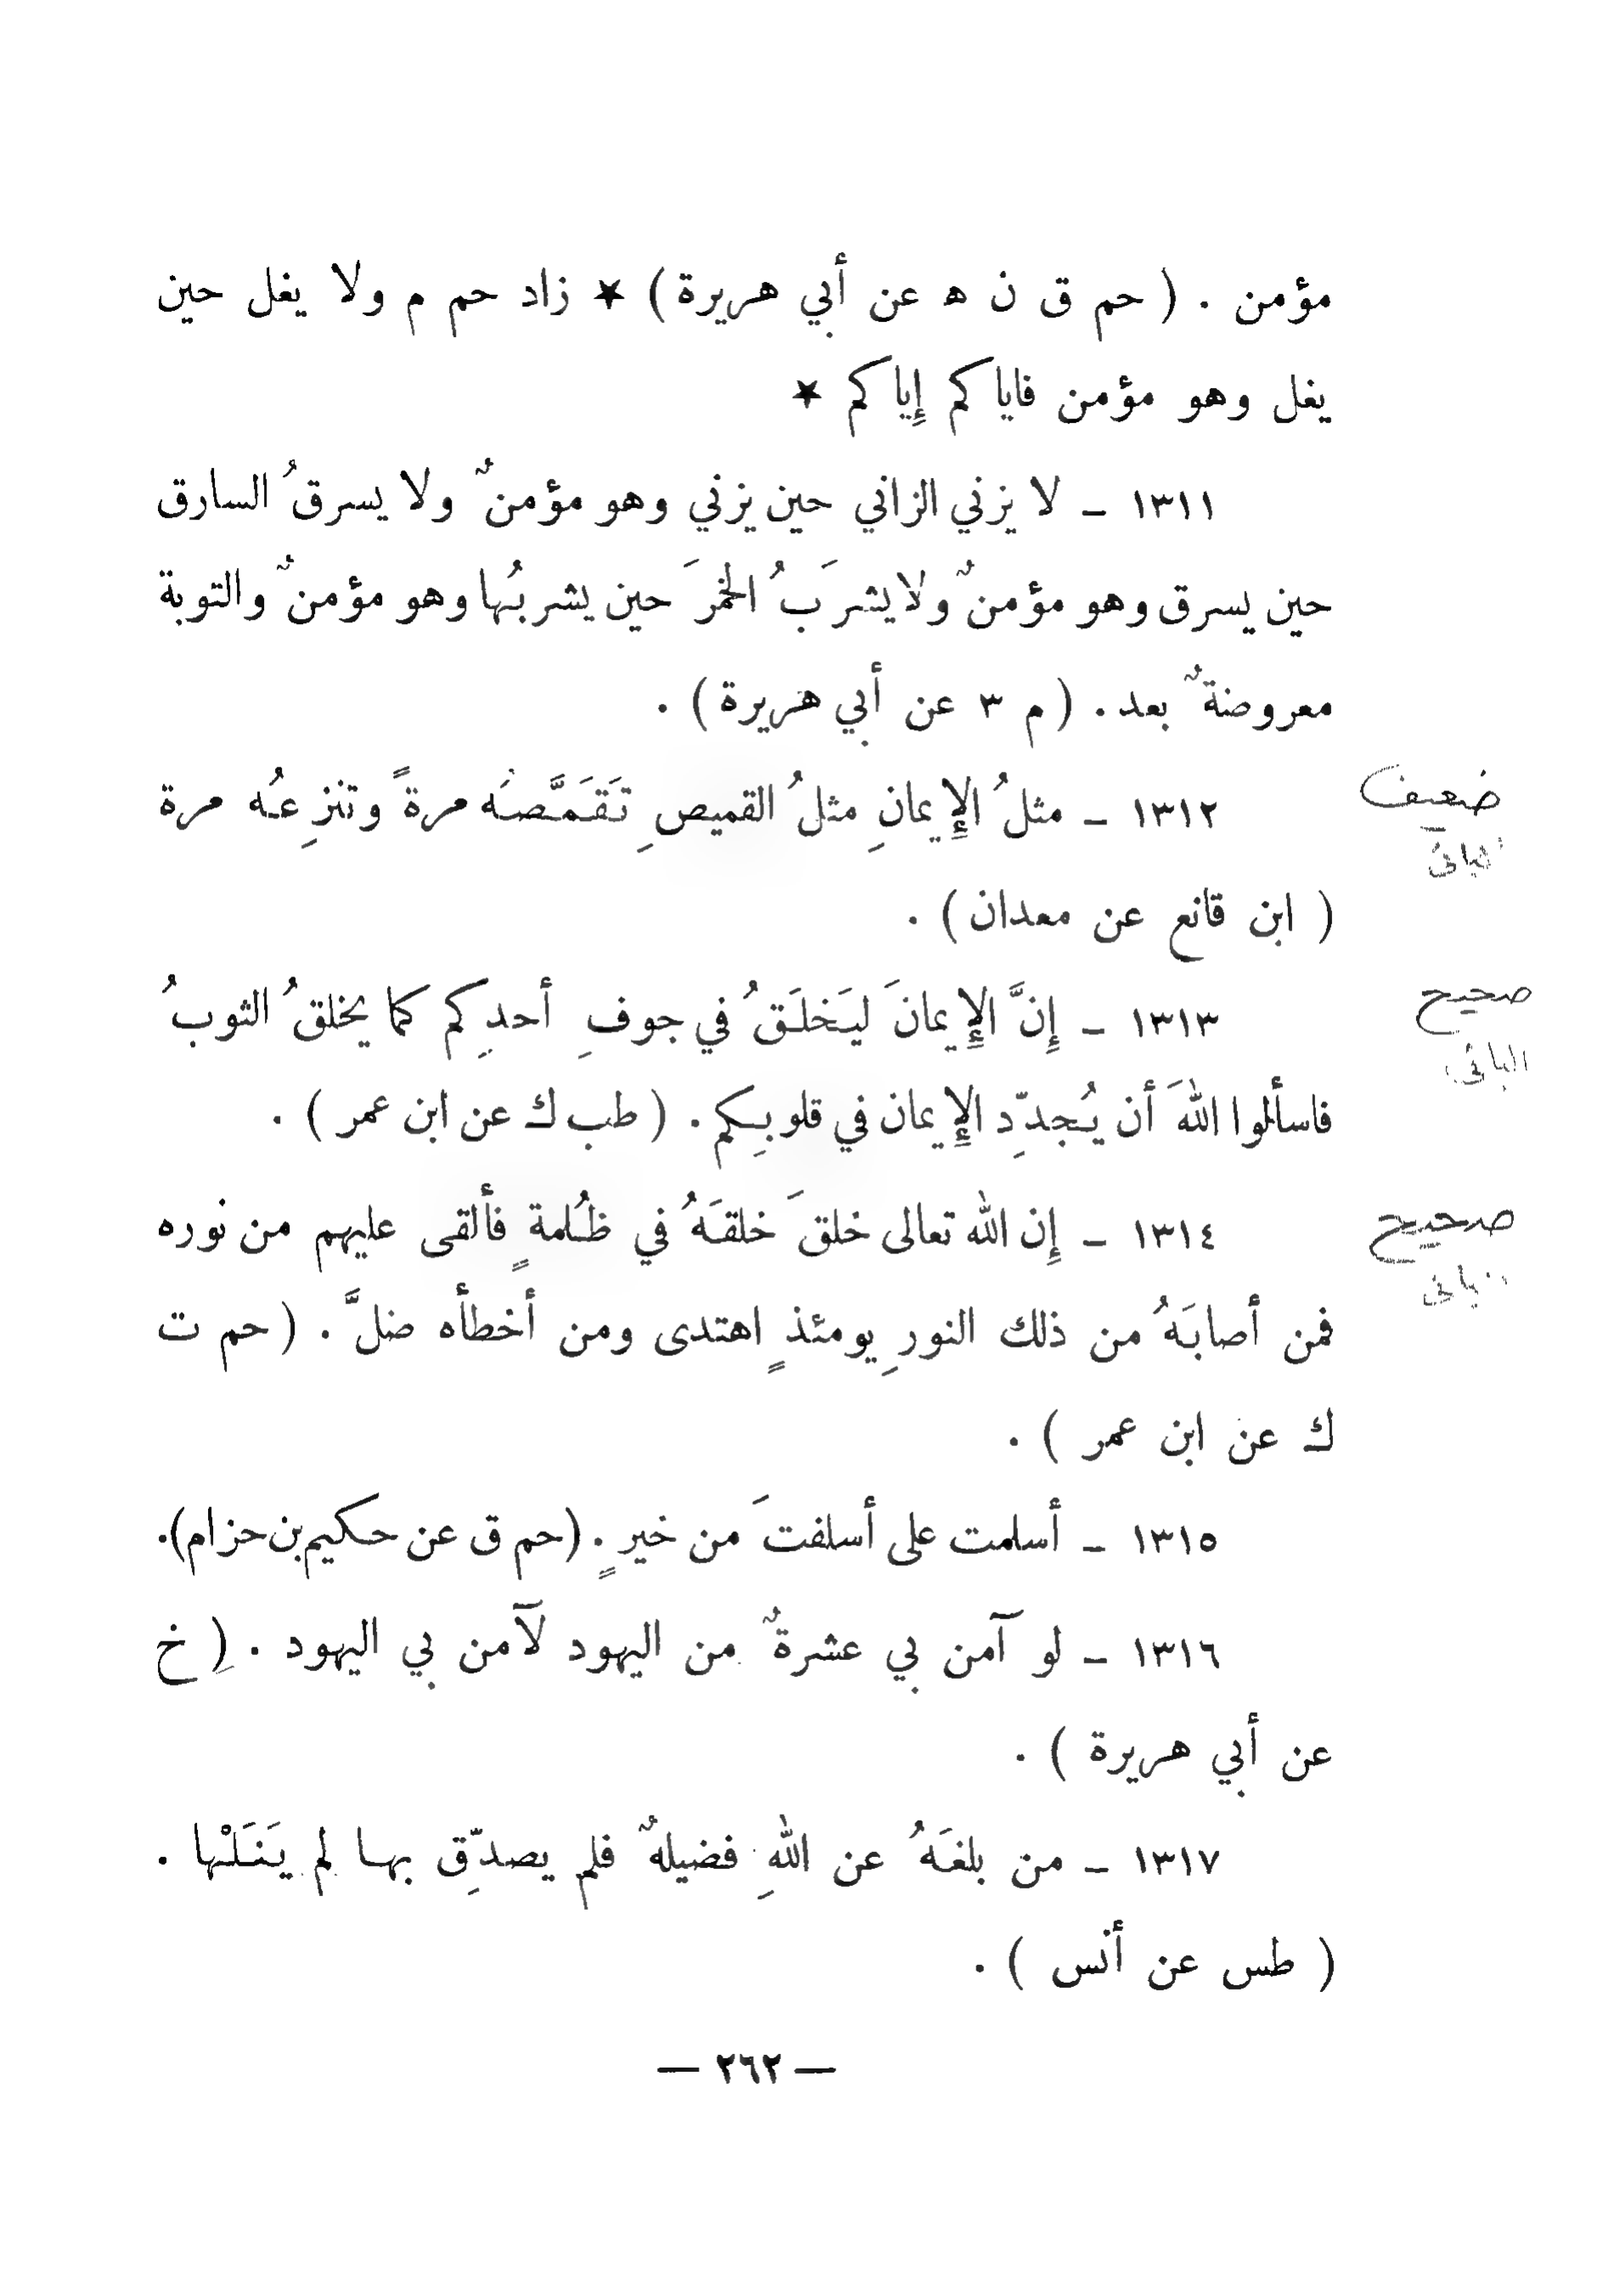 مؤمن . ( حم ق ن ه عن أبي هريرة ) ★ زاد حم م ولا يغل حين
يغل وهو مؤمن فاياكم إِياكم ★
١٣١١ ـ لا يزني الزاني حين يزني وهو مؤمنٌ ولا يسرقُ السارق
حين يسرق وهو مؤمنٌ ولا يشرَبُ الخمرَ حين يشربُها وهو مؤمنٌ والتوبة
معروضةٌ بعد . ( م ٣ عن أبي هريرة ) .
١٣١٢ ـ مثلُ الإِيمانِ مثلُ القميصِ تَقَمَّصُه مرةً وتنزِعُه مرة
ضعيف
الباني
( ابن قانع عن معدان ) .
١٣١٣ ـ إِنَّ الإِيمانَ ليَخلَقُ في جوفِ أحدِكم كما يخلقُ الثوبُ
صحيح
الباني
فاسألوا اللهَ أن يُجدِّد الإِيمان في قلوبِكم . ( طب ك عن ابن عمر ) .
١٣١٤ ـ إِن الله تعالى خلقَ خلقَهُ في ظُلمةٍ فألقى عليهم من نوره
صحيح
الباني
فمن أصابَهُ من ذلك النورِ يومئذٍ اهتدى ومن أخطأه ضلَّ . ( حم ت
ك عن ابن عمر ) .
١٣١٥ ـ أسلمت على أسلفتَ من خيرٍ . ( حم ق عن حكيم بن حزام ) .
١٣١٦ ـ لو آمن بي عشرةٌ من اليهود لآمن بي اليهود . ( خ
عن أبي هريرة ) .
١٣١٧ ـ من بلغَهُ عن اللهِ فضيلهٌ فلم يصدِّق بها لم يَنَلْها .
( طس عن أنس ) .
— ٢٦٢ —